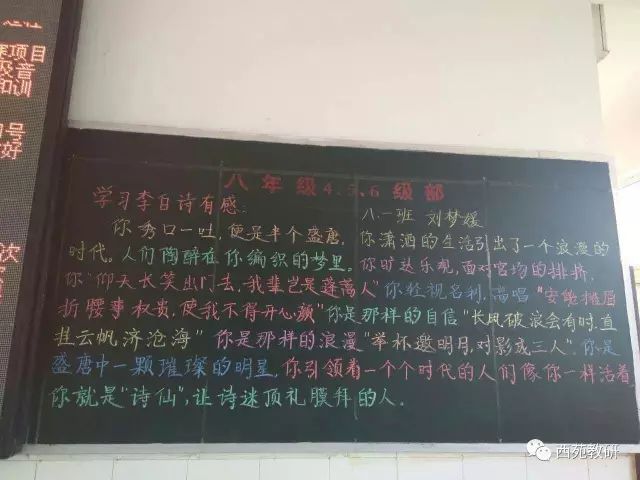 项目
音
训
号
好
八年级4.5.6级部
学习李白诗有感:
八.一班 刘梦媛
你秀口一吐,便是半个盛唐,你潇洒的生活引出了一个浪漫的
时代。人们陶醉在你编织的梦里。你旷达乐观,面对官场的排挤,
你"仰天长笑出门去,我辈岂是蓬蒿人"你轻视名利,高唱"安能摧眉
折腰事权贵,使我不得开心颜"你是那样的自信"长风破浪会有时,直
挂云帆济沧海"你是那样的浪漫"举杯邀明月,对影成三人".你是
盛唐中一颗璀璨的明星,你引领着一个个时代的人们像你一样活着
你就是"诗仙",让诗迷顶礼膜拜的人.
西苑教研